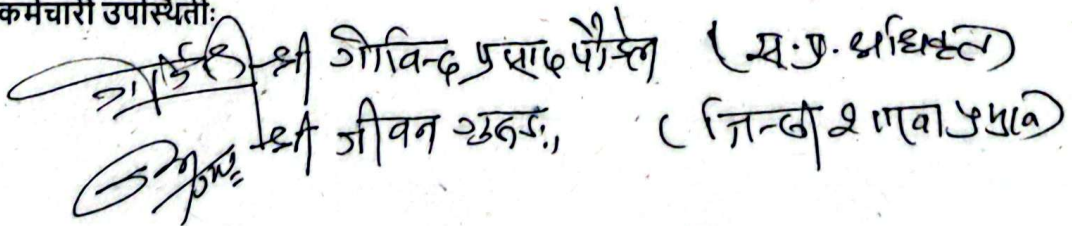 कर्मचारी उपस्थितीः
श्री गोविन्द प्रसाद पौडेल (स.प्र. अधिकृत)
श्री जीवन गुरुङ, (जिन्सी शाखा प्रमुख)